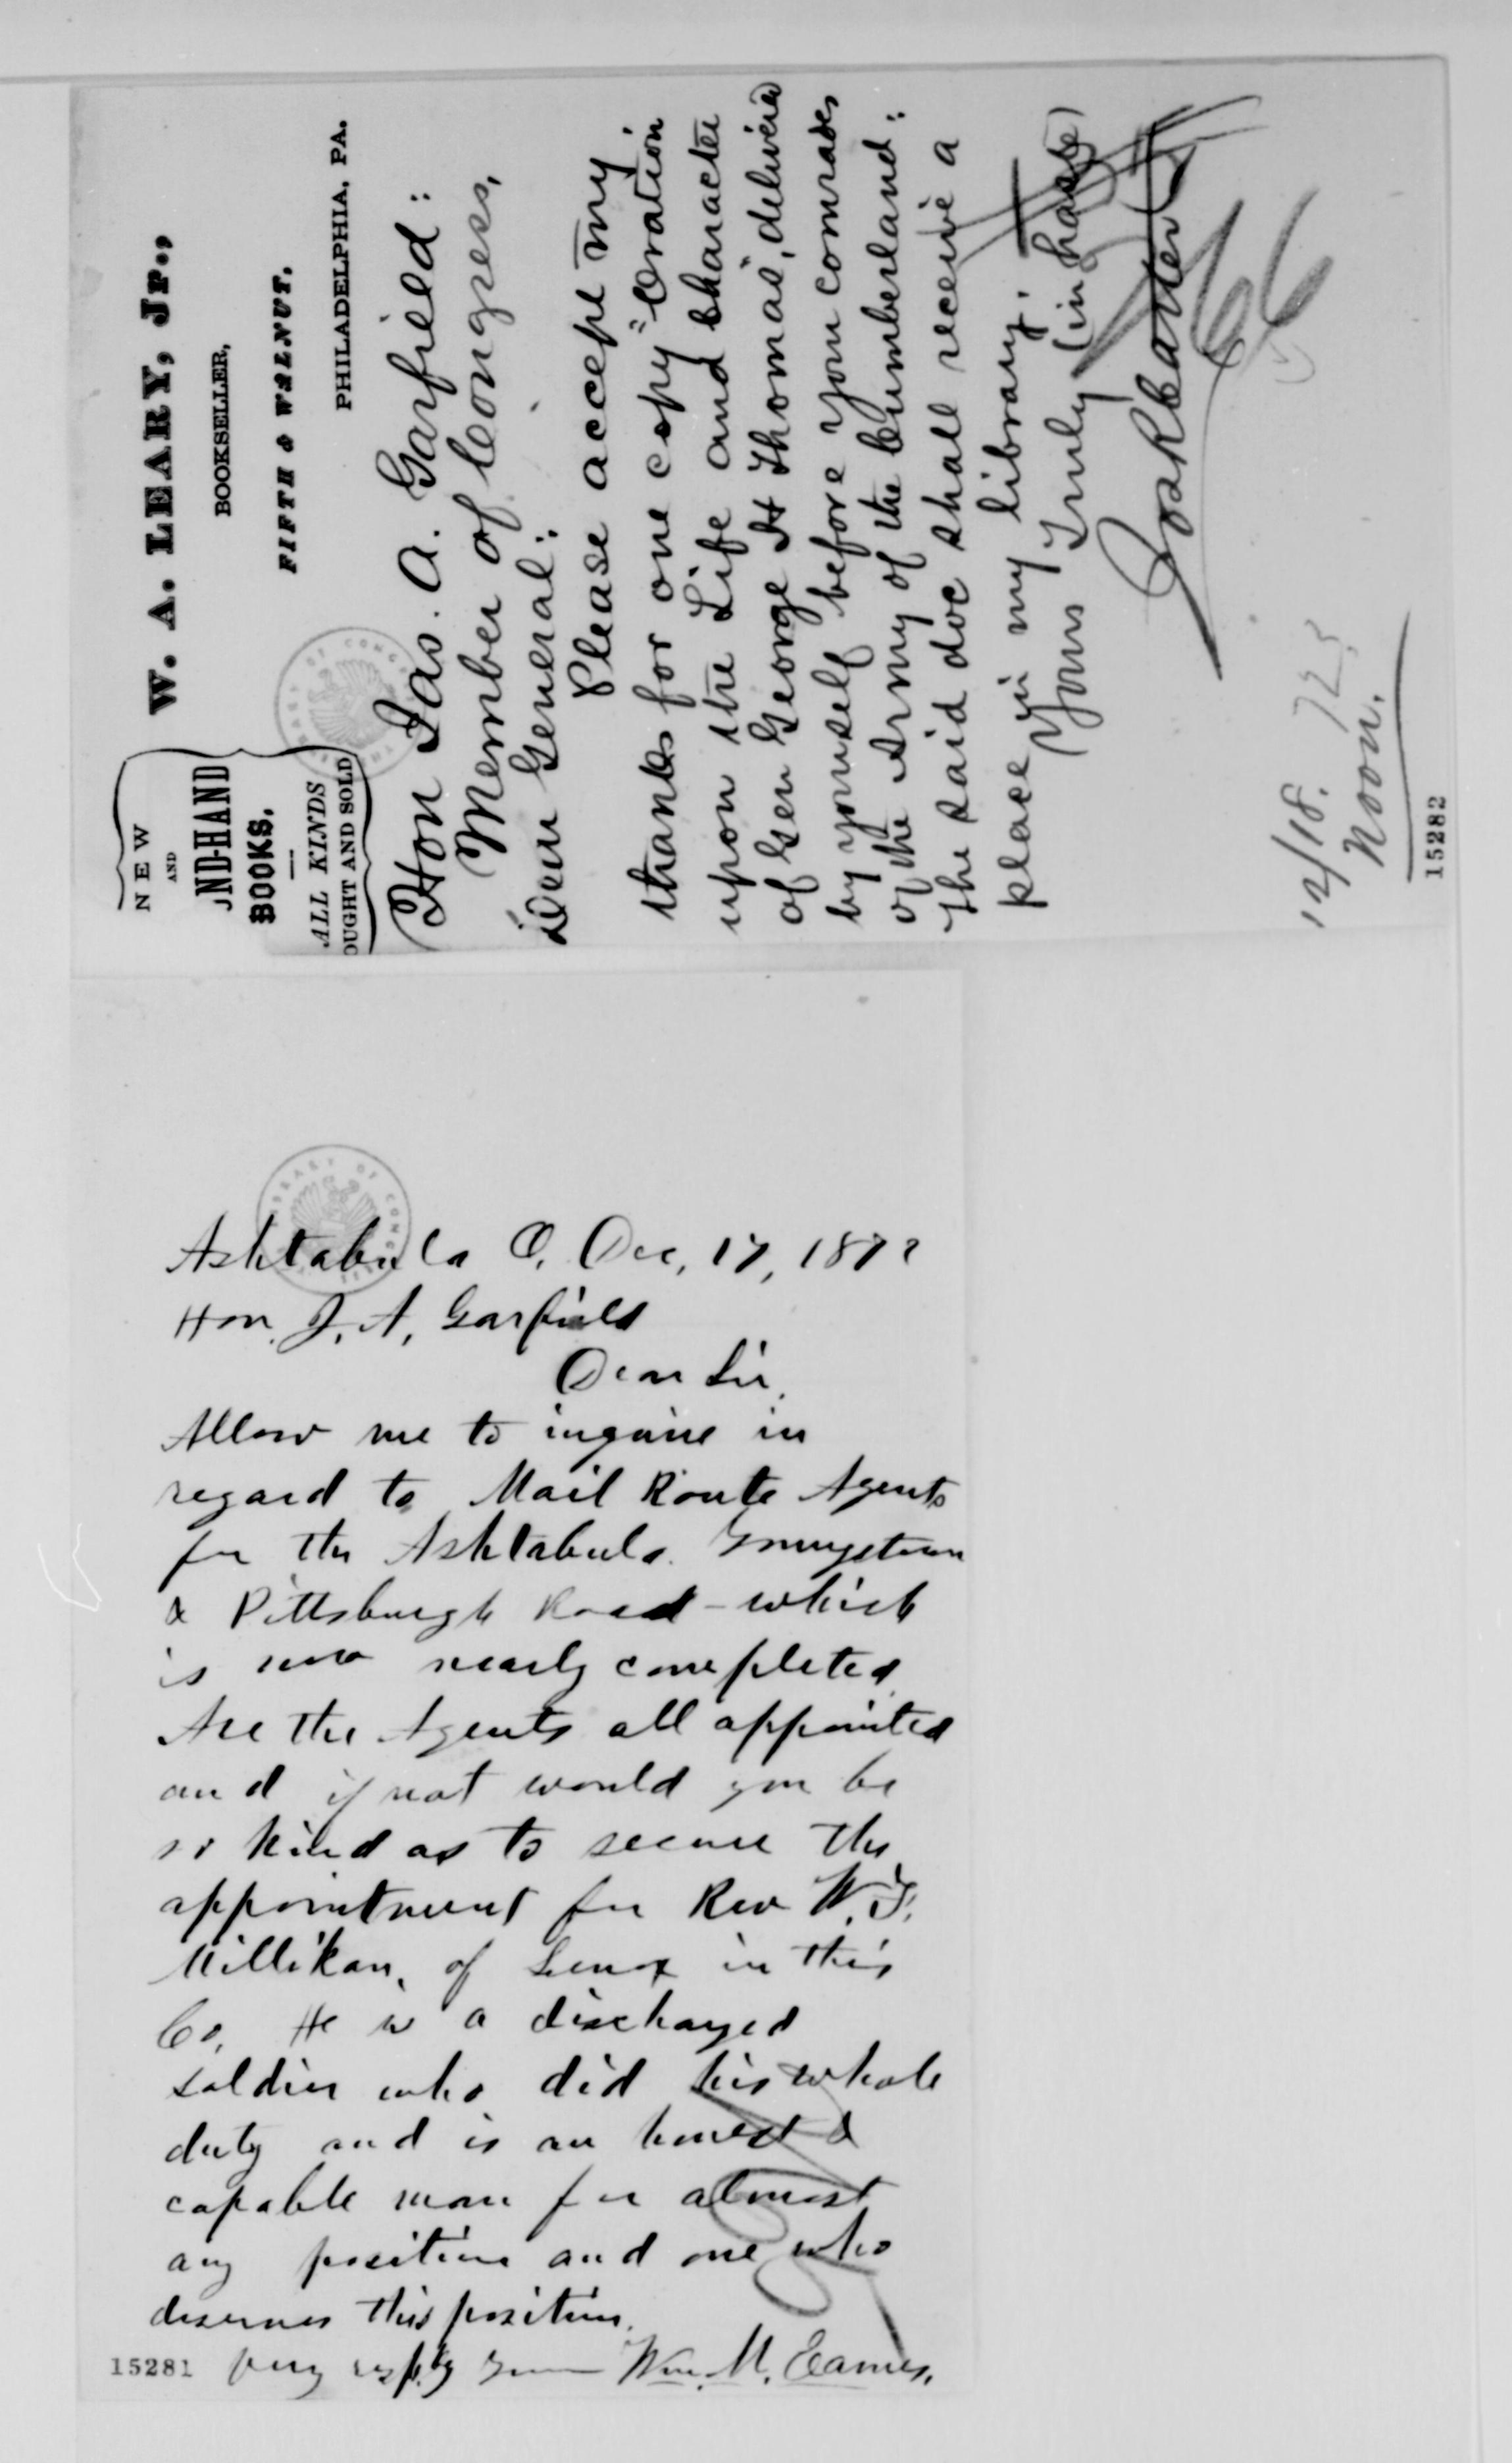 NEW
AND
ND-HAND
BOOKS.
ALL KINDS
OUGHT AND SOLD
W. A. LEARY, Jr.,
BOOKSELLER,
FIFTH & WALNUT.
PHILADELPHIA, PA.
Hon Jas. A. Garfield:
Member of Congress,
Dear General:
Please accept my
thanks for one copy "Oration
upon the Life and Character
of Gen George H Thomas", delivered
by yourself before your comrades
of the Army of the Cumberland:
The said doc shall receive a
place in my library.
Yours Truly (in haste)
12/18. 72
Noon.
15282
Ashtabula O. Dec, 17, 1872
Hon. J. A. Garfield
Dear Sir,
Allow me to inquire in
regard to Mail Route Agents
for the Ashtabula Youngstown
& Pittsburgh Road - which
is now nearly completed
Are the Agents all appointed
and if not would you be
so kind as to secure the
appointment for Rev W.
Millikan, of Lenox in this
Co. He is a discharged
soldier who did his whole
duty and is an honest &
capable man for almost
any position and one who
deserves this position.
15281 Very respty Yours Wm. M. Eames.